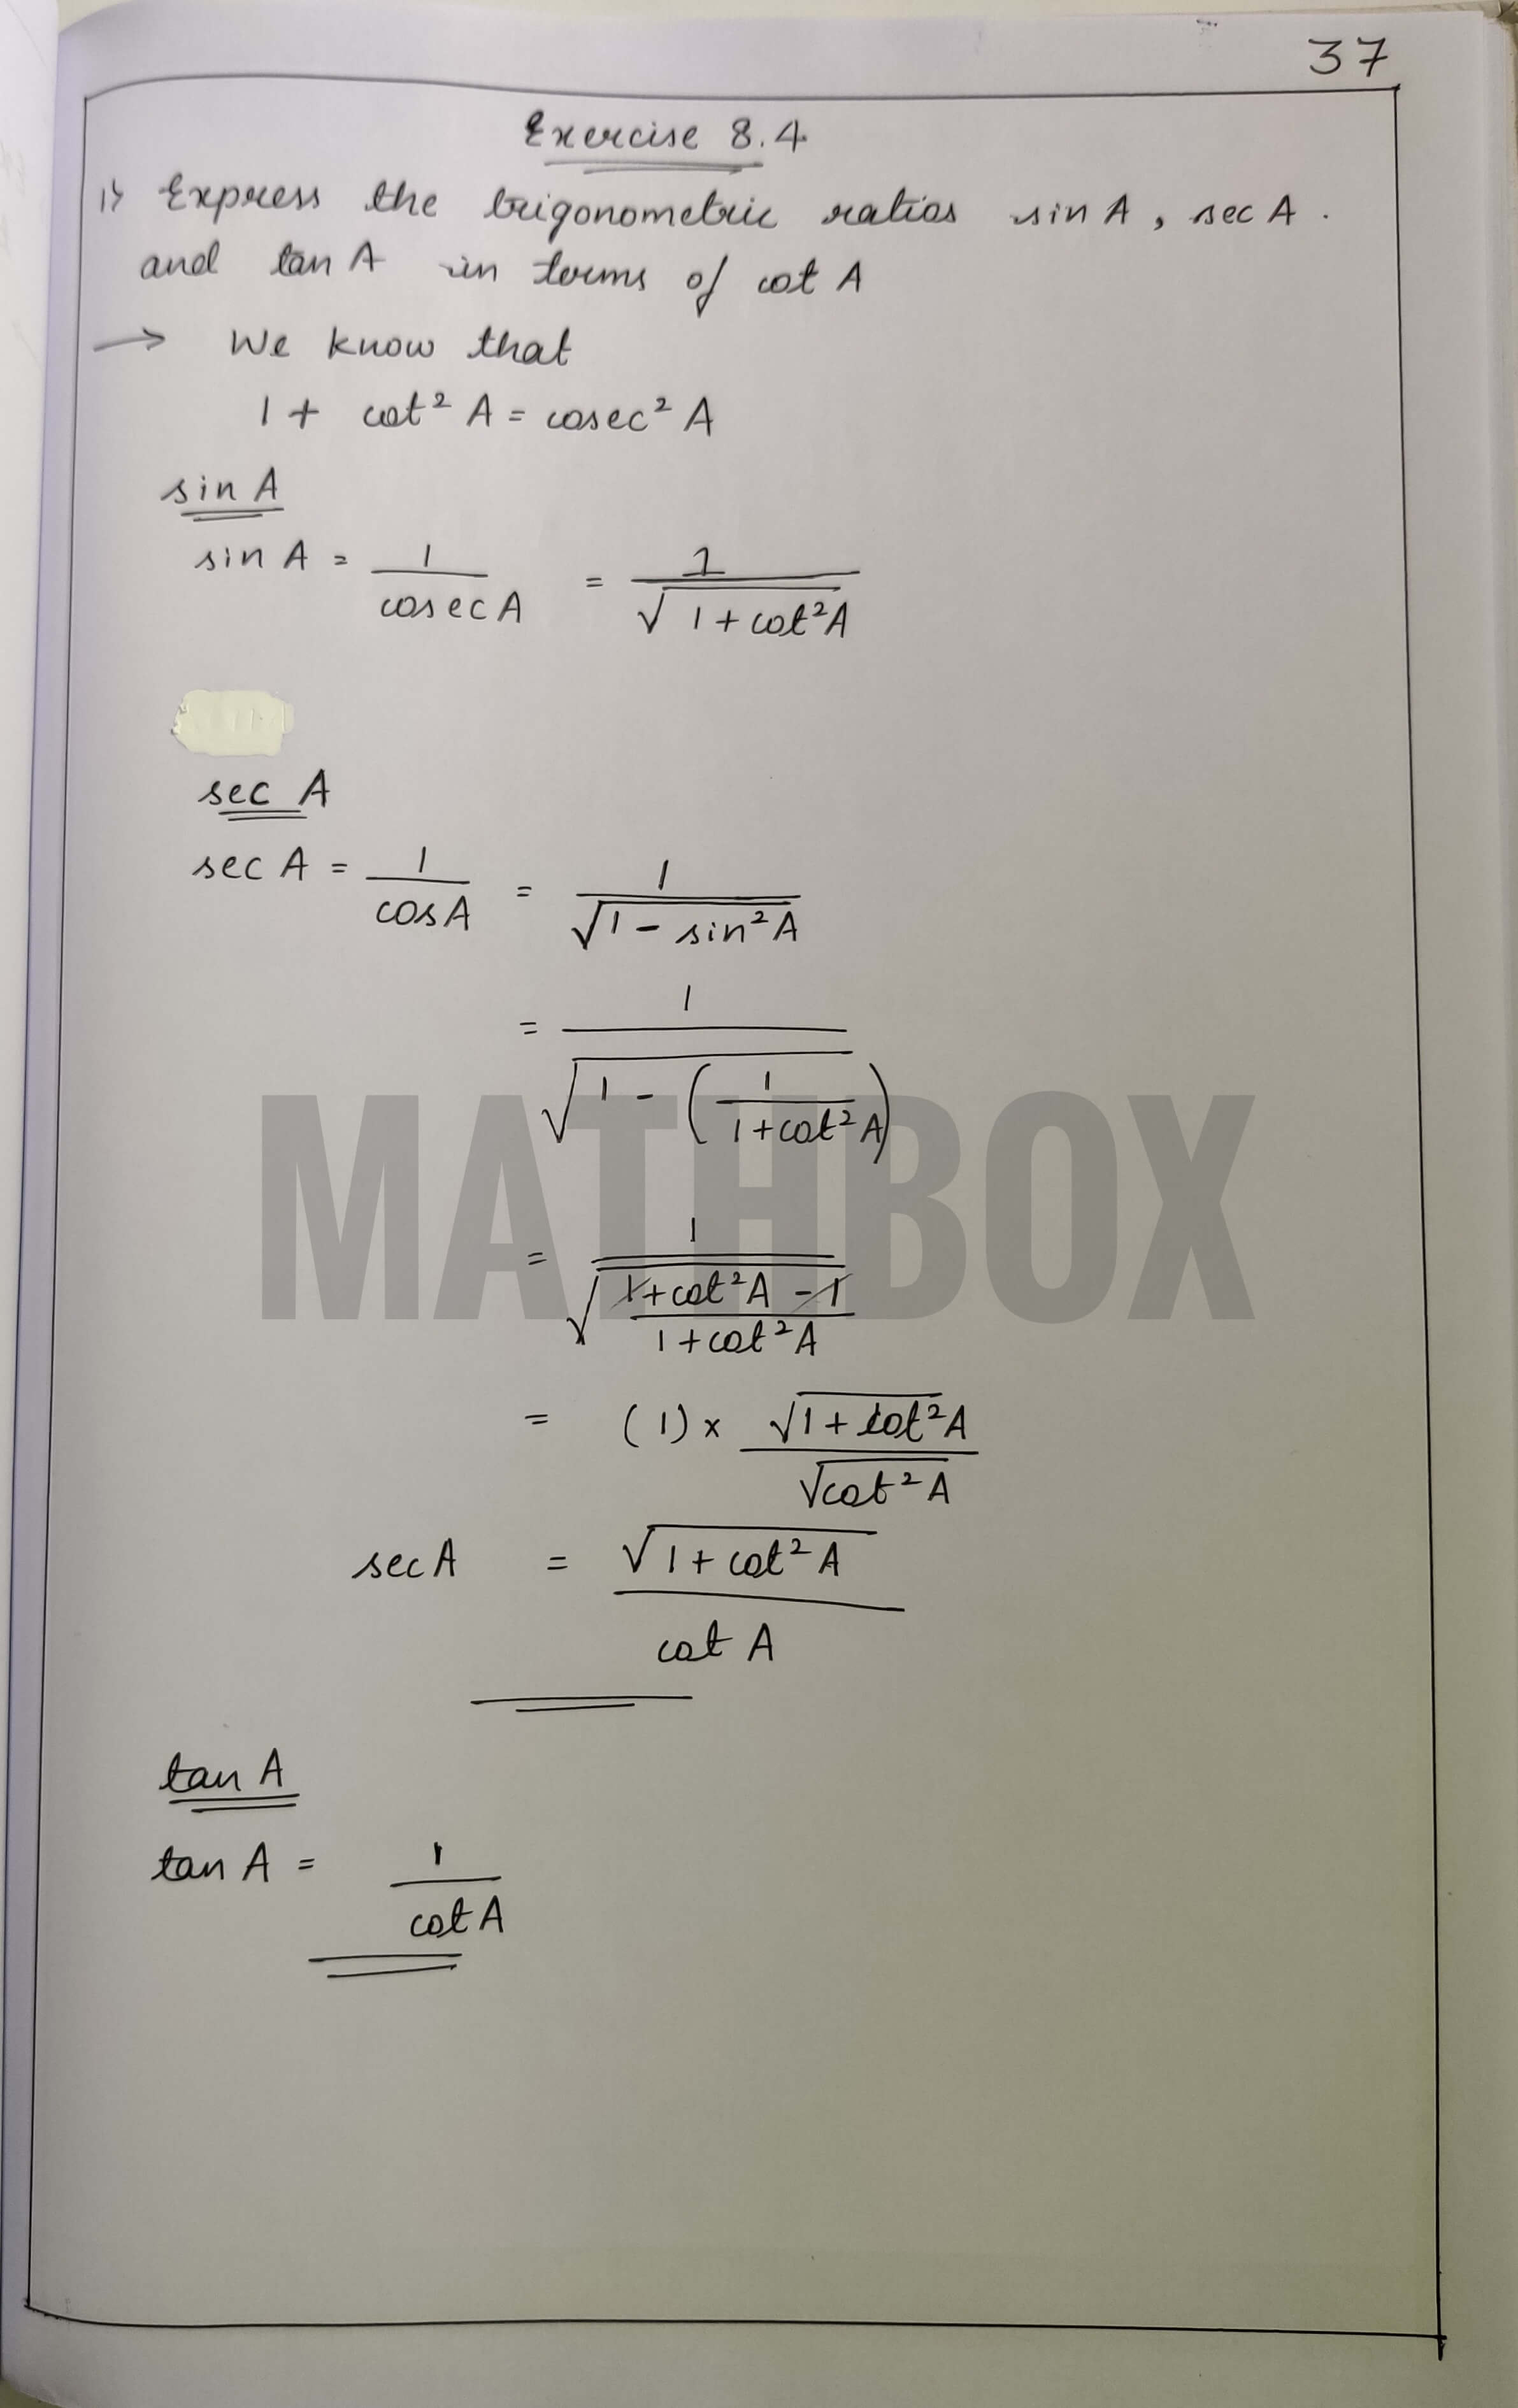 37
Exercise 8.4
1) Express the trigonometric ratios sin A, sec A.
and tan A in terms of cot A
→ We know that
1 + cot² A = cosec² A
sin A
sin A = 1/cosec A = 1/√(1+cot²A)
sec A
sec A = 1/cos A = 1/√(1 - sin²A)
= 1/√(1 - (1/(1+cot²A)))
= 1/√((1+cot²A - 1)/(1+cot²A))
= (1) × √(1+cot²A)/√(cot²A)
sec A = √(1+cot²A)/cot A
tan A
tan A = 1/cot A
MATHBOX